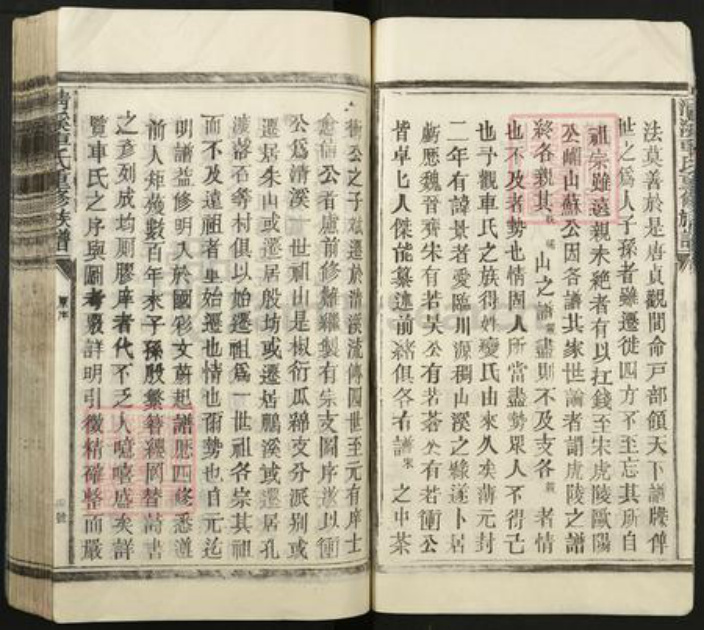 法莫善於是唐貞觀間命戸部領天下譜牒俾
世之爲人子孫者雖遷徙四方不至忘其所自
祖宗雖遠親未絶者有以扛錢至宋虎陵歐陽
公嵋山蘇公因各譜其家世論者謂虎陵之譜
終各親其 山之譜 盡則不及支各 者情
也不及者勢也情固人所當盡勢眾人不得已
也予觀車氏之族得姓變氏由來久矣 元封
二年有諱景者愛臨川源稠山溪之緣遂卜居
歷魏晉齊朱有若吴公有若荅公有若衝公
皆卓七人傑能纂述前緒俱各有譜宋之中茶
衝公之子 遷於清溪流傳四世至元有庠士
愈信公者慮前修難繼製有宗支圖序遂以衝
公爲清溪一世祖山是椒衍瓜綿支分派别或
遷居朱山或遷居殷坊或遷居鵬溪或遷居孔
溪答石等村俱以始遷祖爲一世祖各宗其祖
而不及遠祖者非始遷也情也爾勢也自元迄
明譜益修明入於國彩文蔚起譜歴四修悉遵
前人矩矱數百年來子孫殷繁簪纓閥替尚書
之彦列成均則膠庠者代不乏人噫嘻盛矣詳
覽車氏之序與圖考覈詳明引徵精確整而嚴
清溪車氏重修族譜